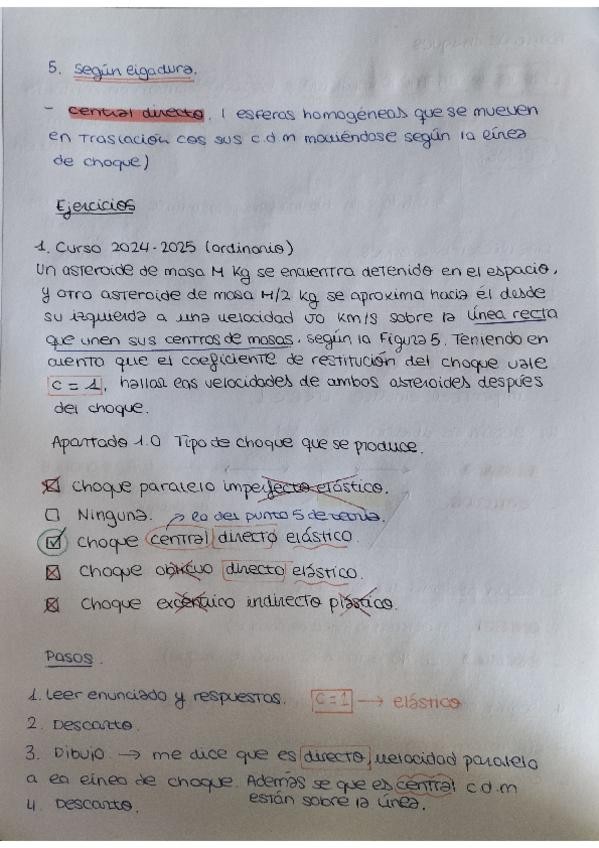 5. Según ligadura.
- central directo. ( esferas homogéneas que se mueven
en traslación cos sus c.d.m moviéndose según la línea
de choque)
Ejercicios
1. Curso 2024-2025 (ordinario)
Un asteroide de masa M kg se encuentra detenido en el espacio,
y otro asteroide de masa M/2 kg se aproxima hacia él desde
su izquierda a una velocidad v0 km/s sobre la línea recta
que unen sus centros de masas, según la Figura 5. Teniendo en
cuento que el coeficiente de restitución del choque vale
C = 1, hallar las velocidades de ambos asteroides después
del choque.
Apartado 1.0 Tipo de choque que se produce.
Choque paralelo imperfecto elástico.
Ninguna. → lo del punto 5 de teoría.
Choque central directo elástico.
Choque oblicuo directo elástico.
Choque excéntrico indirecto plástico.
Pasos.
1. Leer enunciado y respuestas. C=1 → elástico
2. Descarto.
3. Dibujo → me dice que es directo, velocidad paralela
a la línea de choque. Además se que es central c.d.m
están sobre la línea.
4. Descarto.